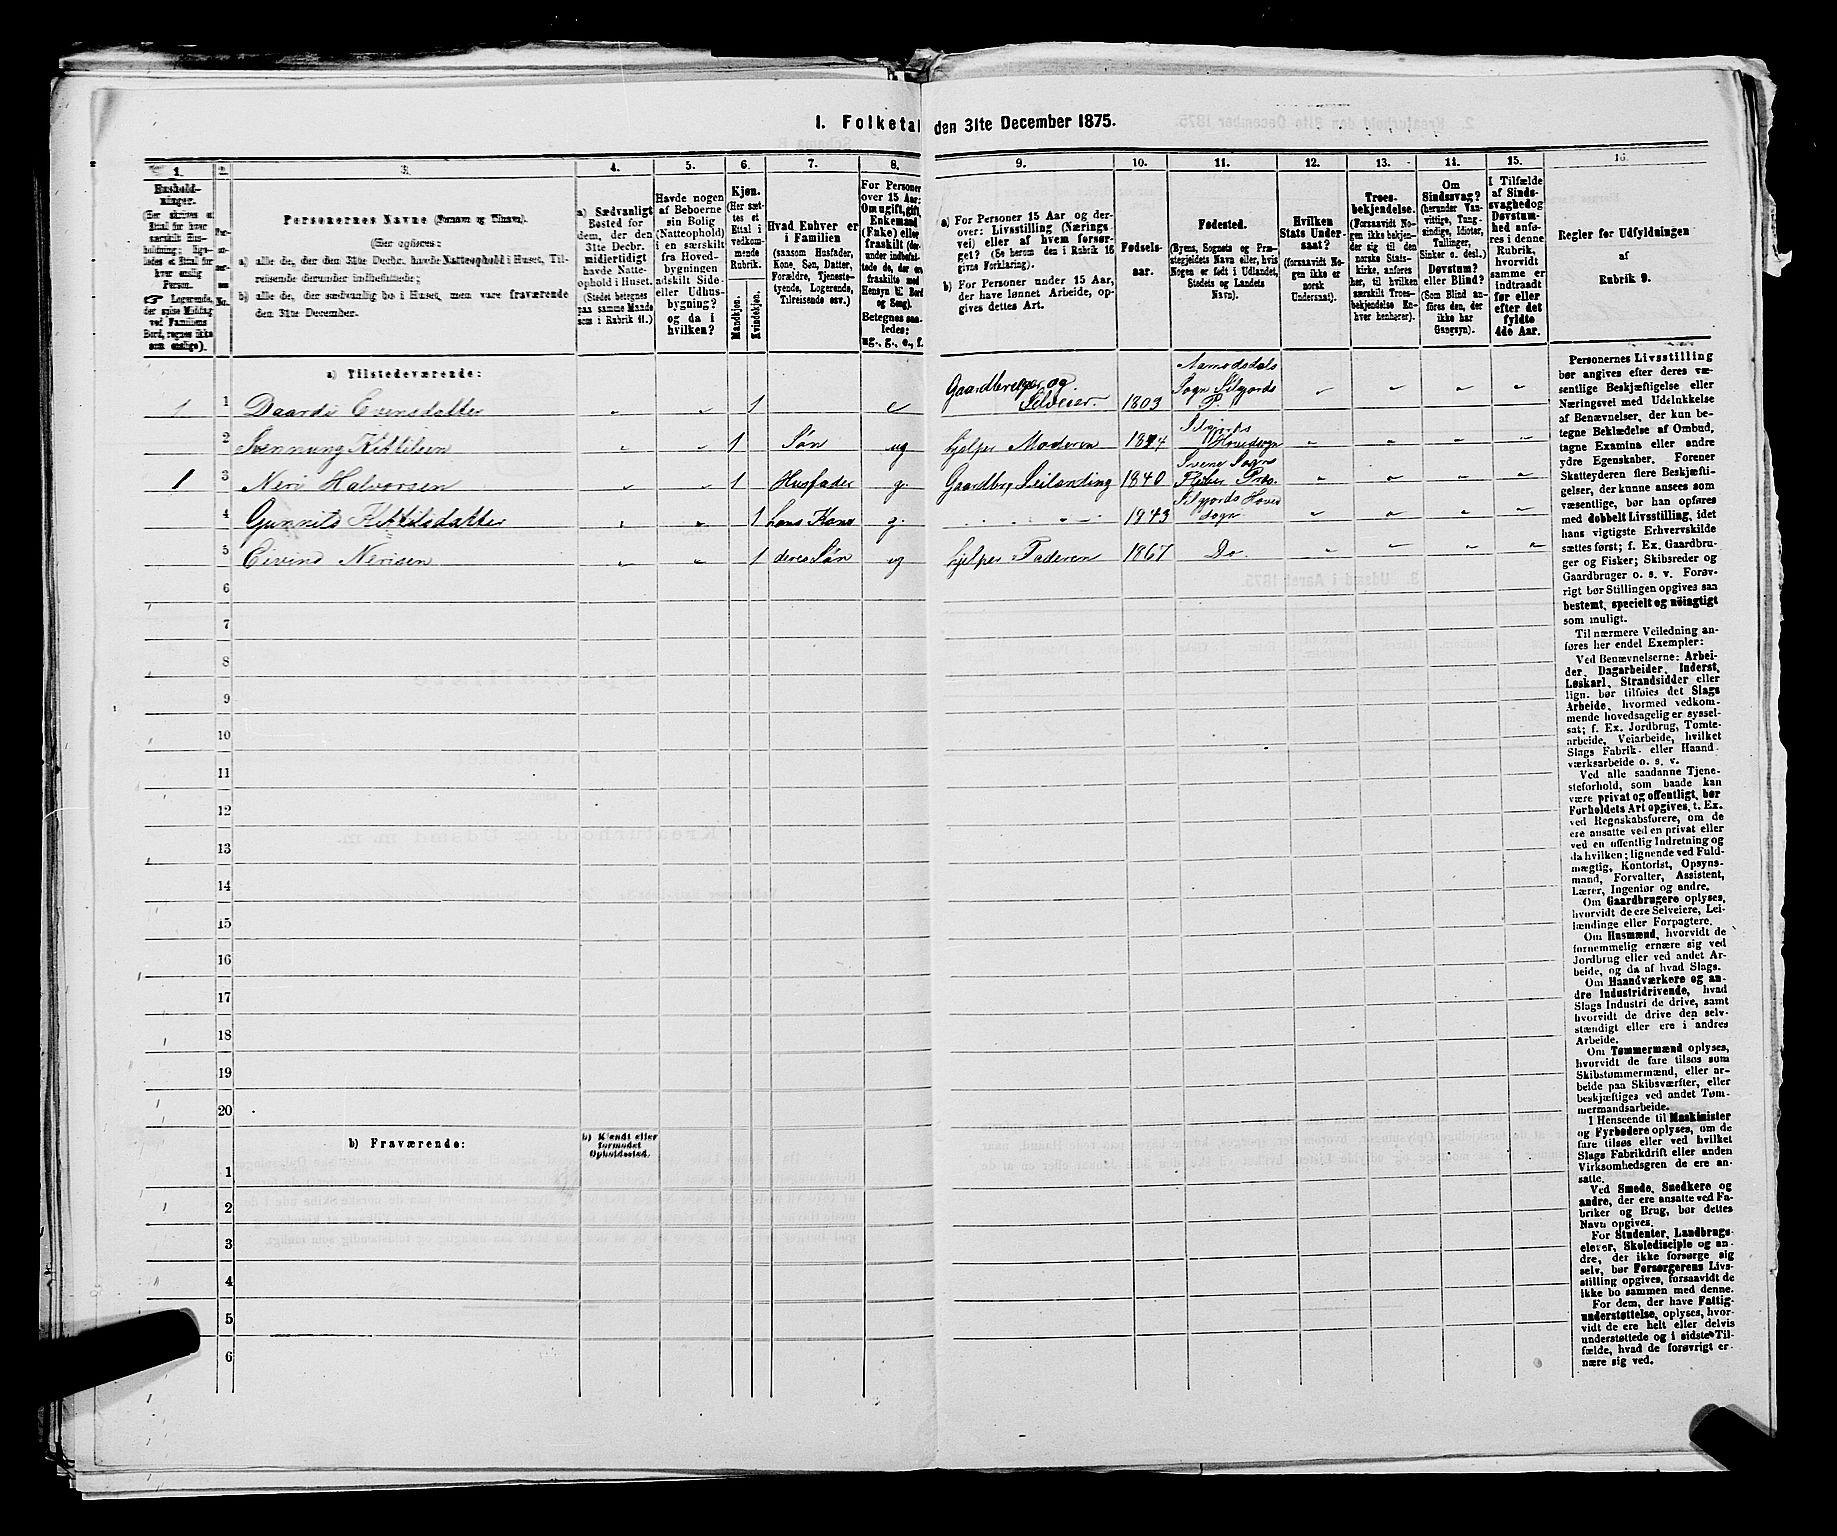 I. Folketal den 31te December 1875.
1.
2.
3.
4.
5.
6.
7.
8.
9.
10.
11.
12.
13.
14.
15.
16.
Hushold-
ninger.
(Her skrives et
Ettal for hver
særskilt Hus-
holdning; lige-
ledes et Ettal for
hver enslig
Person.
Logerende,
der spise Middag
ved Familiens
Bord, regnes ikke
som enslige).
Personernes Navne (Fornavn og Tilnavn).
(Her opføres:
a) alle de, der den 31te Decbr. havde Natteophold i Huset, Til-
reisende derunder indbefattede;
b) alle de, der sædvanlig bo i Huset, men vare fraværende
den 31te December.
a) Sædvanligt
Bosted for
dem, der den
31te Decbr.
midlertidigt
havde Natte-
ophold i Huset.
(Stedet betegnes
paa samme Maade
som i Rubrik 11.)
Havde nogen
af Beboerne
sin Bolig
(Natteophold)
i en særskilt
fra Hoved-
bygningen
adskilt Side-
eller Udhus-
bygning?
og da i
hvilken?
Kjøn.
(Her sæt-
tes et
Ettal i
vedkom-
mende
Rubrik.
Mandkjøn.
Kvindekjøn.
Hvad Enhver er
i Familien
(saasom Husfader,
Kone, Søn, Datter,
Forældre, Tjeneste-
tyende, Logerende,
Tilreisende osv.)
For Personer
over 15 Aar:
Om ugift, gift,
Enkemand
(Enke) eller
fraskilt (der-
under indbefat-
tede de, der ere
fraskilte med
Hensyn til Bord
og Seng).
Betegnes saa-
ledes:
ug., g., e., f.
a) For Personer 15 Aar og der-
over: Livsstilling (Nærings-
vei) eller af hvem forsør-
get? (Se herom den i Rubrik 16
givne Forklaring).
b) For Personer under 15 Aar,
der have lønnet Arbeide, op-
gives dettes Art.
Fødsels-
aar.
Fødested.
(Byens, Sognets og Præ-
stegjeldets Navn eller, hvis
Nogen er født i Udlandet,
Stedets og Landets
Navn).
Hvilken
Stats Under-
saat?
(forsaavidt No-
gen ikke er
norsk
Undersaat).
Troes-
bekjendelse.
(Forsaavidt No-
gen ikke bekjen-
der sig til den
norske Stats-
kirke, anføres
her, til hvilken
særskilt Troes-
bekjendelse En-
hver henhører).
Om
Sindssvag?
(herunder Van-
vittige, Tung-
sindige, Idioter,
Tullinger,
Sinker o. desl.)
Døvstum?
eller Blind?
(Som Blind an-
føres den, der
ikke har
Gangsyn).
I Tilfælde
af Sinds-
svaghed og
Døvstum-
hed anfø-
res i denne
Rubrik,
hvorvidt
samme er
indtraadt
før eller
efter det
fyldte
4de Aar.
Regler for Udfyldningen
af
Rubrik 9.
a) Tilstedeværende:
1 1 Daardi Evensdatter „ „ 1 e Gaardbruger og Selveier. 1803 Aamodsdals Sogn Silgjords P. „ „ „ „
2 Svennung Kittilsen „ „ 1 Søn ug hjelper Moderen Silgjords Hovedsogn „ „ „ „
1 3 Neri Halvorsen „ „ 1 Husfader g. Gaardbr. Leilænding 1840 „ „ „ „
4 Gunnild Kittilsdatter „ „ 1 hans Kone g. 1843 Silgjords Hoved sogn „ „ „ „
5 Eivind Nerisen „ „ 1 deres Søn ug hjelper Faderen 1867 Do. „ „ „ „
6
7
8
9
10
11
12
13
14
15
16
17
18
19
20
b) Fraværende:
b) Kjendt eller
formodet
Opholdssted.
1
2
3
4
5
6
Personernes Livsstilling
bør angives efter deres væ-
sentlige Beskjæftigelse eller
Næringsvei med Udelukkelse
af Benævnelser, der kun be-
tegne Beklædelse af Ombud,
tagne Examina eller andre
ydre Egenskaber. Forener
Skatteyderen flere Beskjæfti-
gelser, der kunne ansees som
væsentlige, bør han opføres
med dobbelt Livsstilling, idet
hans vigtigste Erhvervskilde
sættes først; f. Ex. Gaardbru-
ger og Fisker; Skibsreder og
Gaardbruger o. s. v. Forøv-
rigt bør Stillingen opgives saa
bestemt, specielt og nøiagtigt
som muligt.
Til nærmere Veiledning an-
føres her endel Exempler:
Ved Benævnelserne: Arbei-
der, Dagarbeider, Inderst,
Løskarl, Strandsidder eller
lign. bør tilføies det Slags
Arbeide, hvormed vedkom-
mende hovedsagelig er syssel-
sat; f. Ex. Jordbrug, Tomte-
arbeide, Veiarbeide, hvilket
Slags Fabrik- eller Haand-
værksarbeide o. s. v.
Ved alle saadanne Tjene-
steforhold, som baade kan
være privat og offentligt, bør
Forholdets Art opgives, t. Ex.
ved Regnskabsførere, om de
ere ansatte ved en privat eller
ved en offentlig Indretning og
da hvilken; lignende ved Fuld-
mægtig, Kontorist, Opsyns-
mand, Forvalter, Assistent,
Lærer, Ingeniør og andre.
Om Gaardbrugere oplyses,
hvorvidt de ere Selveiere, Lei-
lændinge eller Forpagtere.
Om Husmænd, hvorvidt de
fornemmelig ernære sig ved
Jordbrug eller ved andet Ar-
beide, og da af hvad Slags.
Om Haandværkere og an-
dre Industridrivende, hvad
Slags Industri de drive, samt
hvorvidt de drive den selv-
stændigt eller ere i andres
Arbeide.
Om Tømmermænd oplyses,
hvorvidt de fare tilsøs som
Skibstømmermænd, eller ar-
beide paa Skibsværfter, eller
beskjæftiges ved andet Tøm-
mermandsarbeide.
I Henseende til Maskinister
og Fyrbødere oplyses, om de
fare tilsøs eller ved hvilket
Slags Fabrikdrift eller anden
Virksomhedsgren de ere an-
satte.
Ved Smede, Snedkere og
andre, der ere ansatte ved Fa-
briker og Brug, bør dettes
Navn opgives.
For Studenter, Landbrugs-
elever, Skoledisciple og an-
dre, der ikke forsørge sig
selv, bør Forsørgerens Livs-
stilling opgives, forsaavidt de
ikke bo sammen med denne.
For dem, der have Fattig-
understøttelse, oplyses, hvor-
vidt de ere helt eller delvis
understøttede og i sidste Til-
fælde, hvad de forøvrigt er-
nære sig ved.